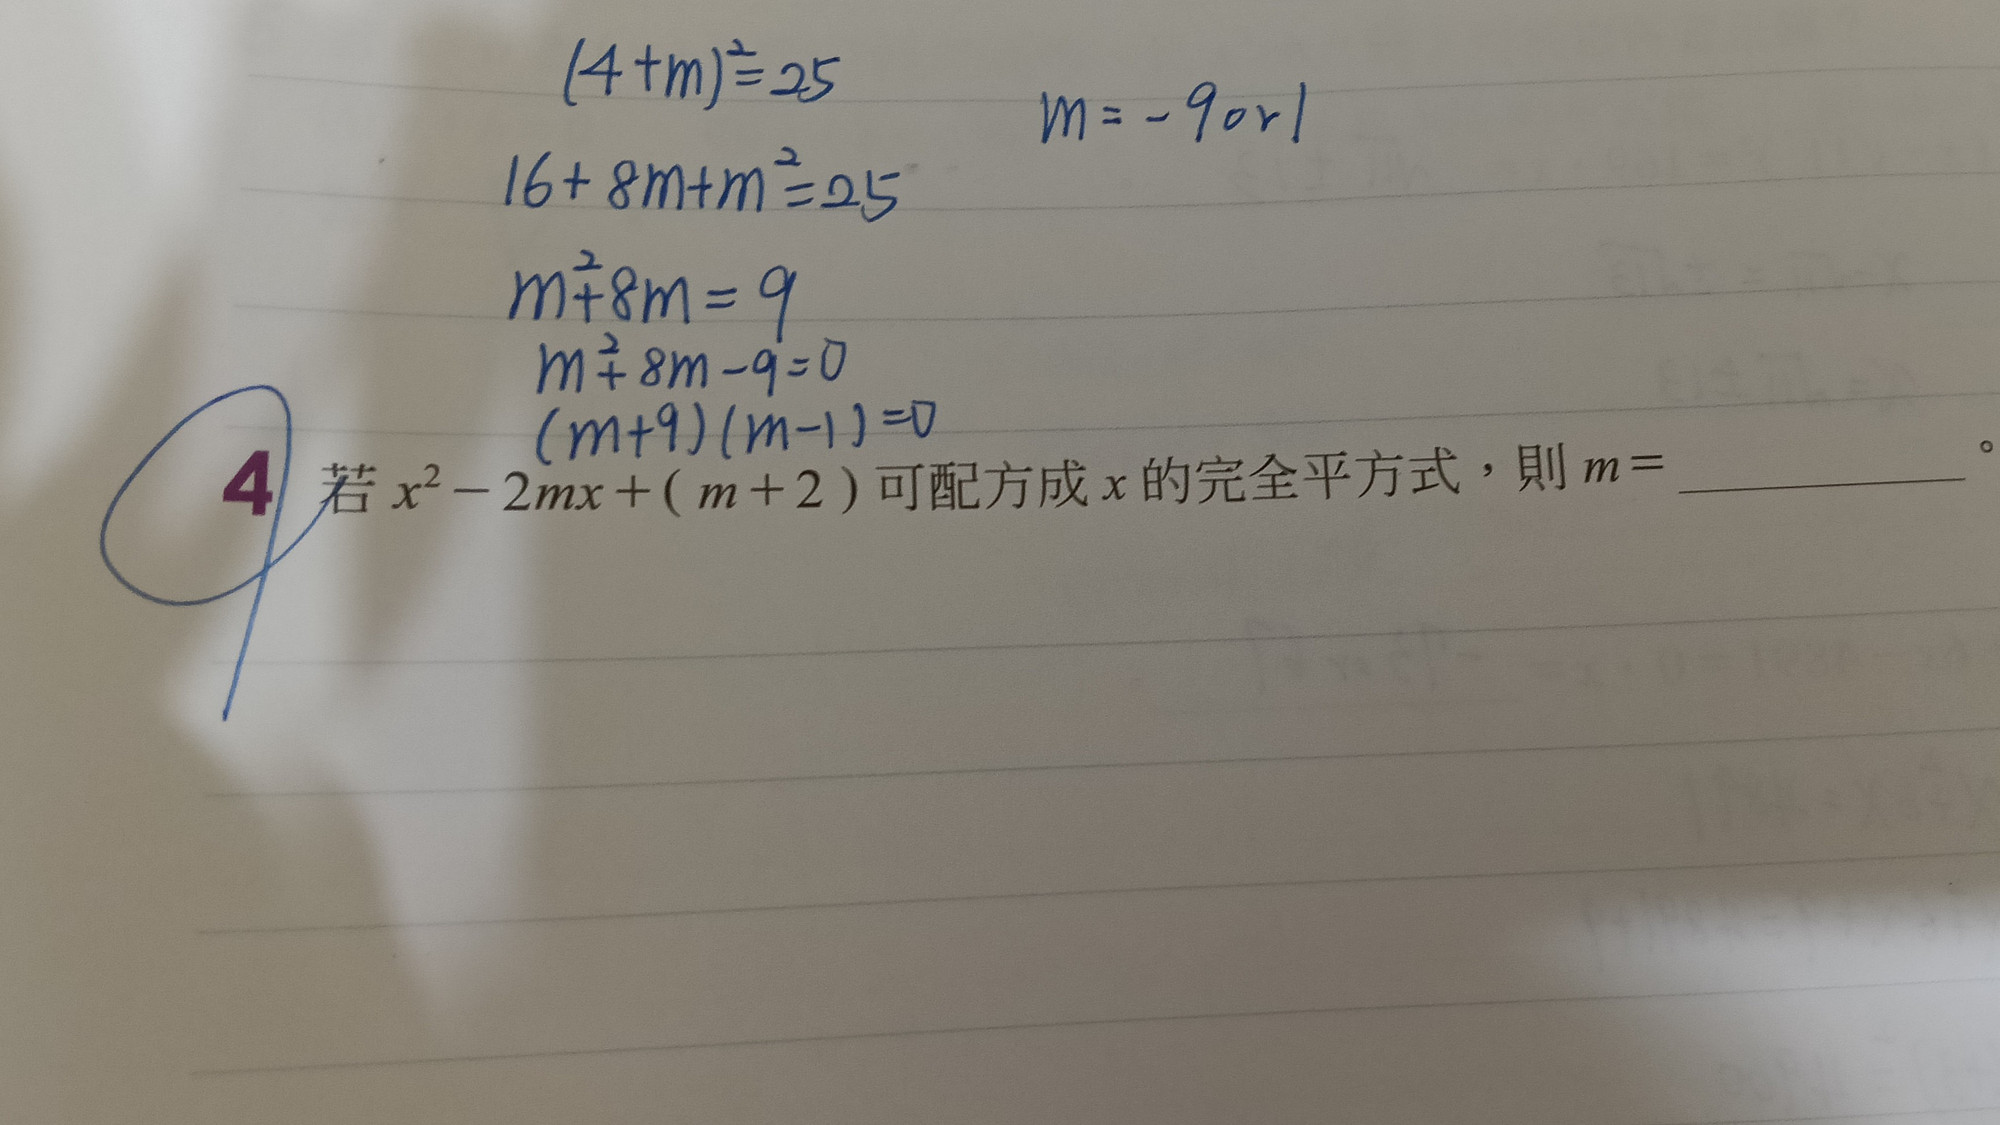 (4+m)²=25
m=-9or1
16+8m+m²=25
m²+8m=9
m²+8m-9=0
(m+9)(m-1)=0
4 若 x²－2mx＋( m＋2 ) 可配方成 x 的完全平方式，則 m＝________。